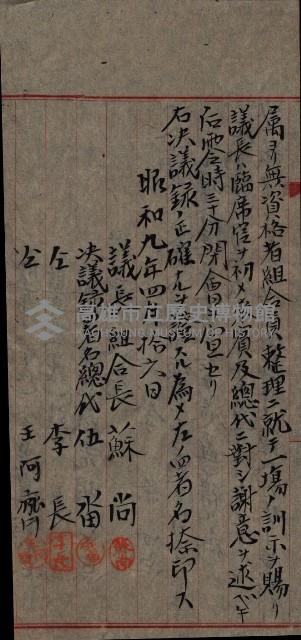 属ヨリ無資格者組合員整理ニ就テ一場ノ訓示ヲ賜リ
議長ハ臨席官ヲ初メ役員及總代ニ對シ謝意ヲ述ベ午
后零時三十分閉會ヲ宣セリ
右決議録ノ正確ナルヲ證スル為メ左ノ四者名捺印ス
昭和九年四月拾六日
議長組合長 蘇 尚
決議録署名總代 伍 畓
仝 李 長
仝 王 阿
高雄市立歷史博物館
KAOHSIUNG MUSEUM OF HISTORY